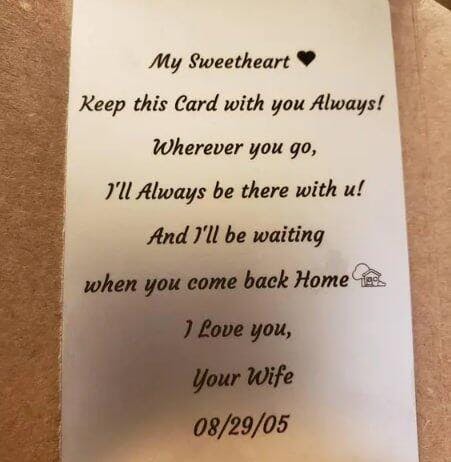 My Sweetheart ♥
Keep this Card with you Always!
Wherever you go,
I'll Always be there with u!
And I'll be waiting
when you come back Home
I Love you,
Your Wife
08/29/05